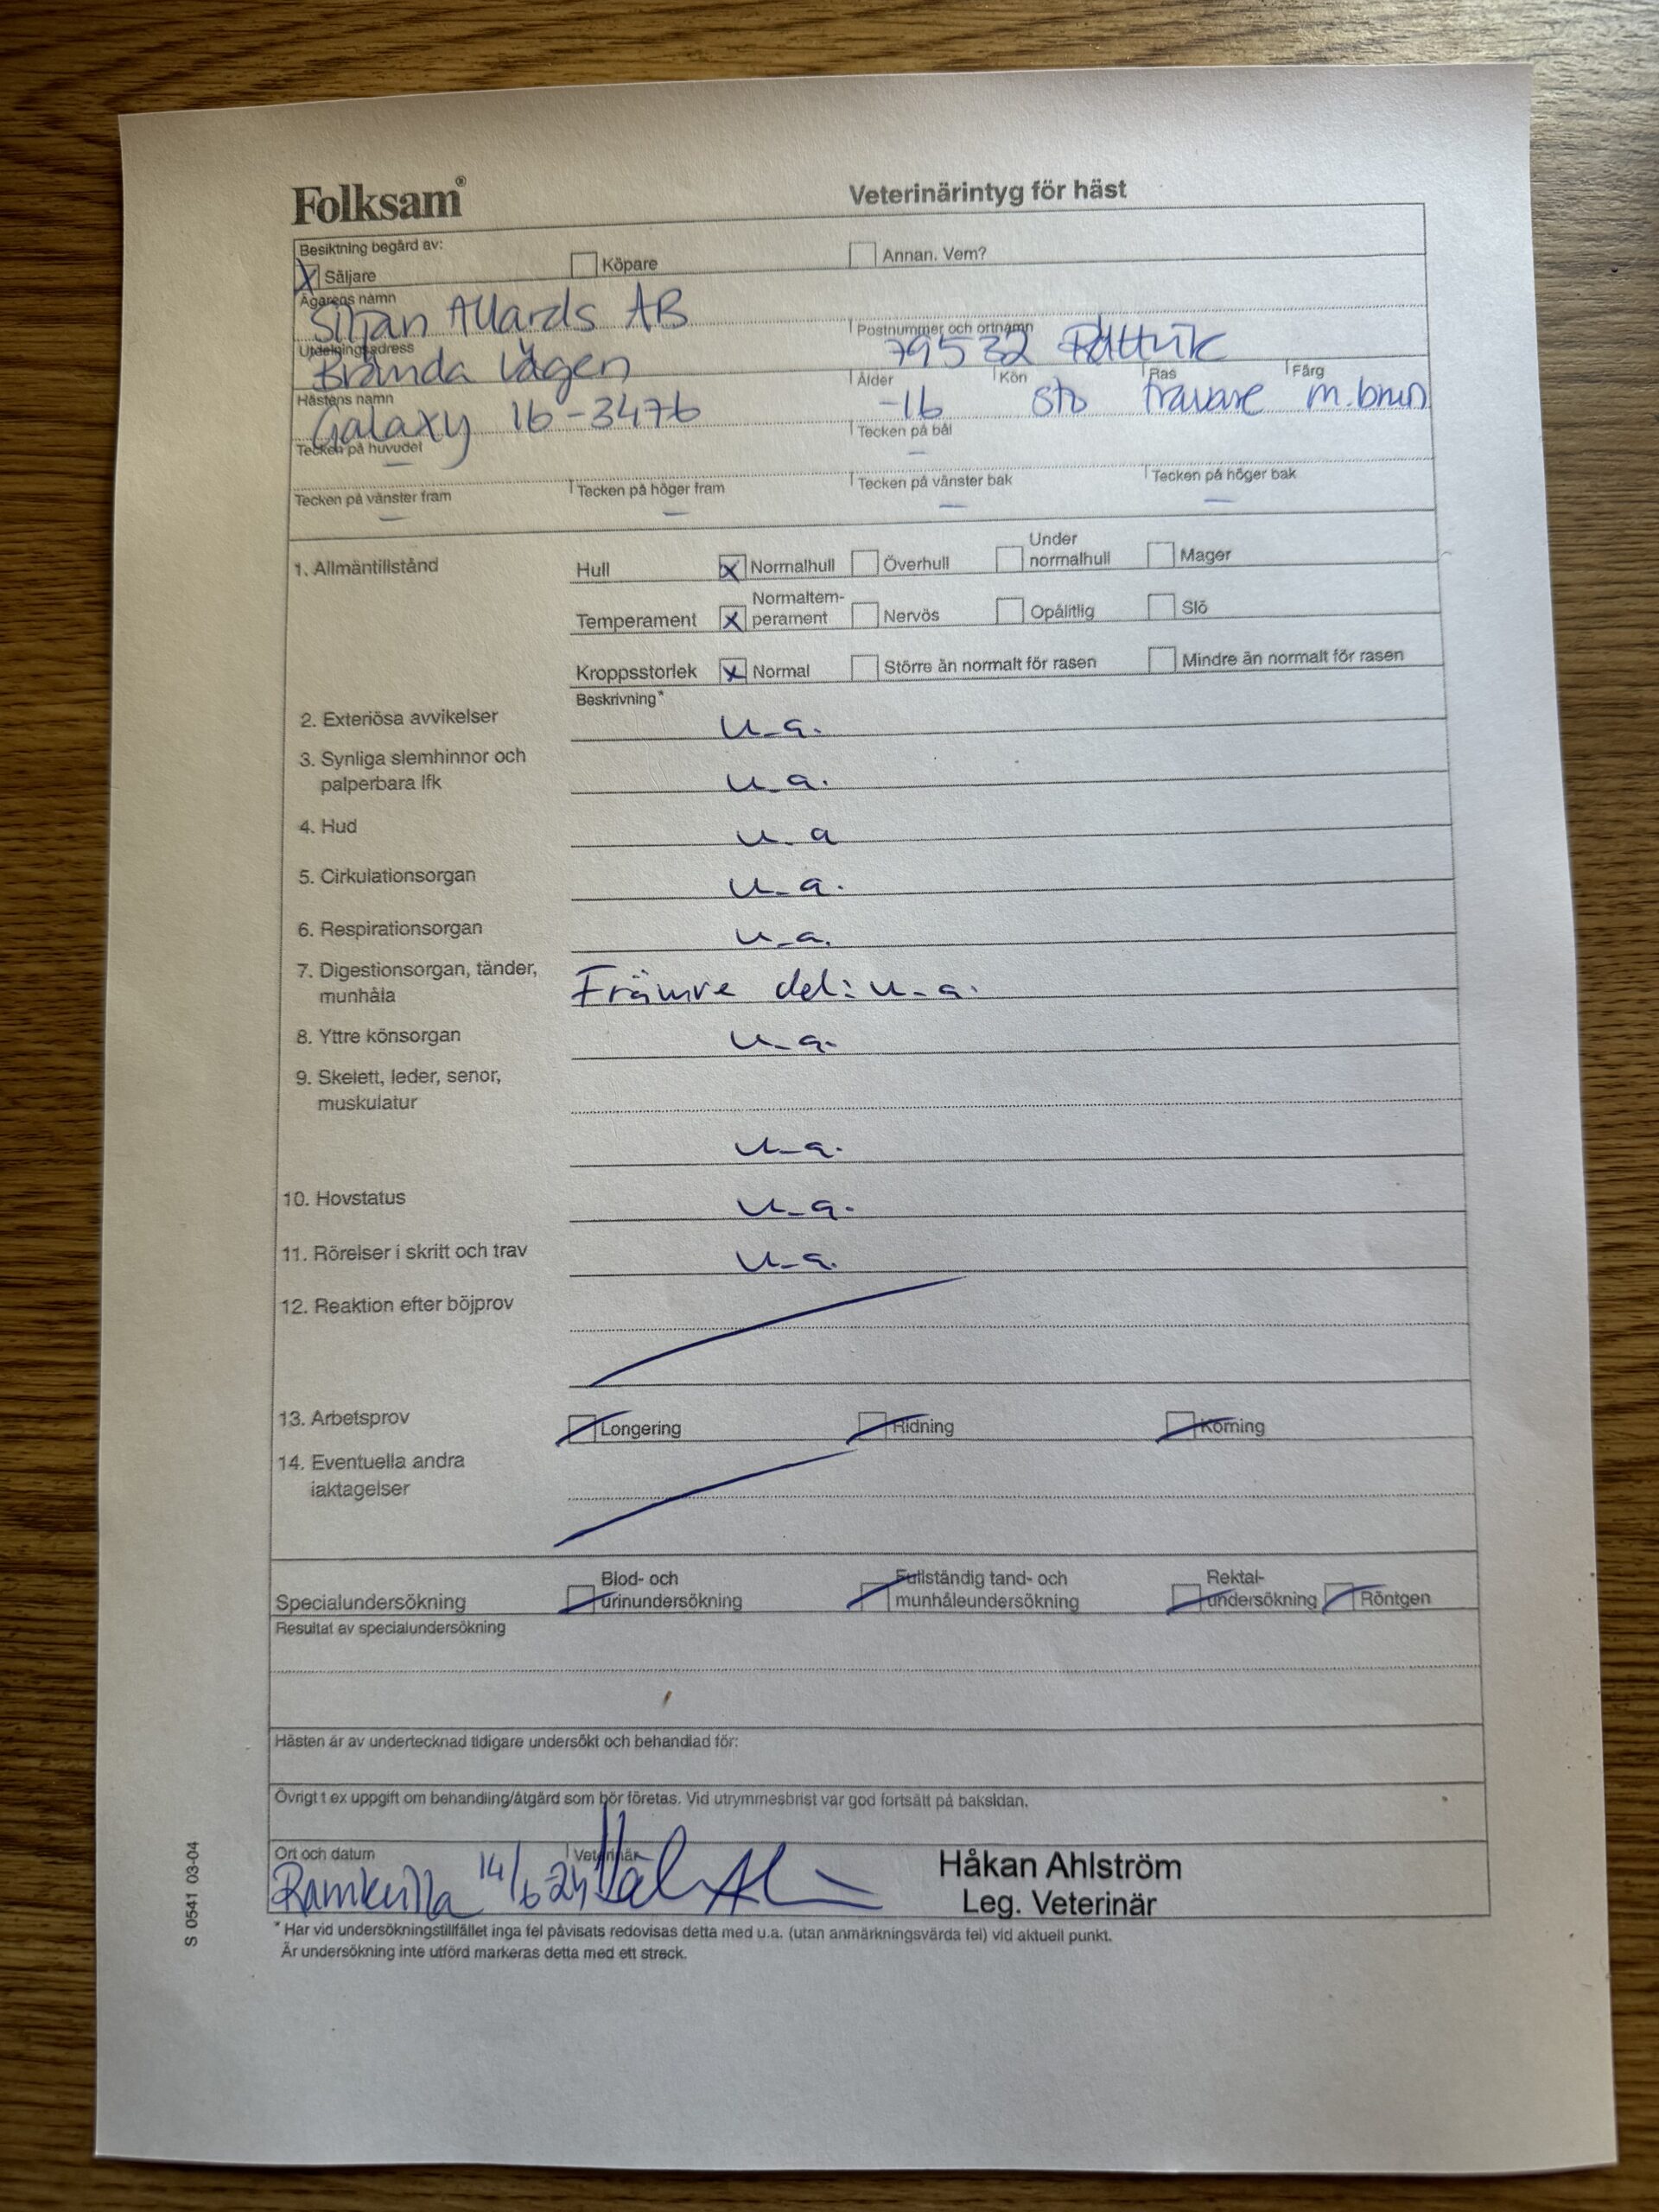 Folksam®
Veterinärintyg för häst
Besiktning begärd av:
X Säljare Köpare Annan. Vem?
Ägarens namn
Siljan Allards AB
Utdelningsadress Postnummer och ortnamn
Brända Vägen 79532 Rättvik
Hästens namn Ålder Kön Ras Färg
Galaxy 16-3476 -16 sto travare m.brun
Tecken på huvudet Tecken på bål
– –
Tecken på vänster fram Tecken på höger fram Tecken på vänster bak Tecken på höger bak
– – – –
1. Allmäntillstånd Hull X Normalhull Överhull Under normalhull Mager
Temperament X Normaltem-
perament Nervös Opålitlig Slö
Kroppsstorlek X Normal Större än normalt för rasen Mindre än normalt för rasen
Beskrivning*
2. Exteriösa avvikelser u.a.
3. Synliga slemhinnor och
palperbara lfk u.a.
4. Hud u.a
5. Cirkulationsorgan u.a.
6. Respirationsorgan u.a.
7. Digestionsorgan, tänder,
munhåla Främre del: u.a.
8. Yttre könsorgan u.a.
9. Skelett, leder, senor,
muskulatur
u.a.
10. Hovstatus u.a.
11. Rörelser i skritt och trav u.a.
12. Reaktion efter böjprov
13. Arbetsprov Longering Ridning Körning
14. Eventuella andra
iaktagelser
Specialundersökning Blod- och
urinundersökning Fullständig tand- och
munhåleundersökning Rektal-
undersökning Röntgen
Resultat av specialundersökning
Hästen är av undertecknad tidigare undersökt och behandlad för:
Övrigt t ex uppgift om behandling/åtgärd som bör företas. Vid utrymmesbrist var god fortsätt på baksidan.
Ort och datum Veterinär
Ramkvilla 14/6-24
Håkan Ahlström
Leg. Veterinär
* Har vid undersökningstillfället inga fel påvisats redovisas detta med u.a. (utan anmärkningsvärda fel) vid aktuell punkt.
Är undersökning inte utförd markeras detta med ett streck.
S 0541 03-04